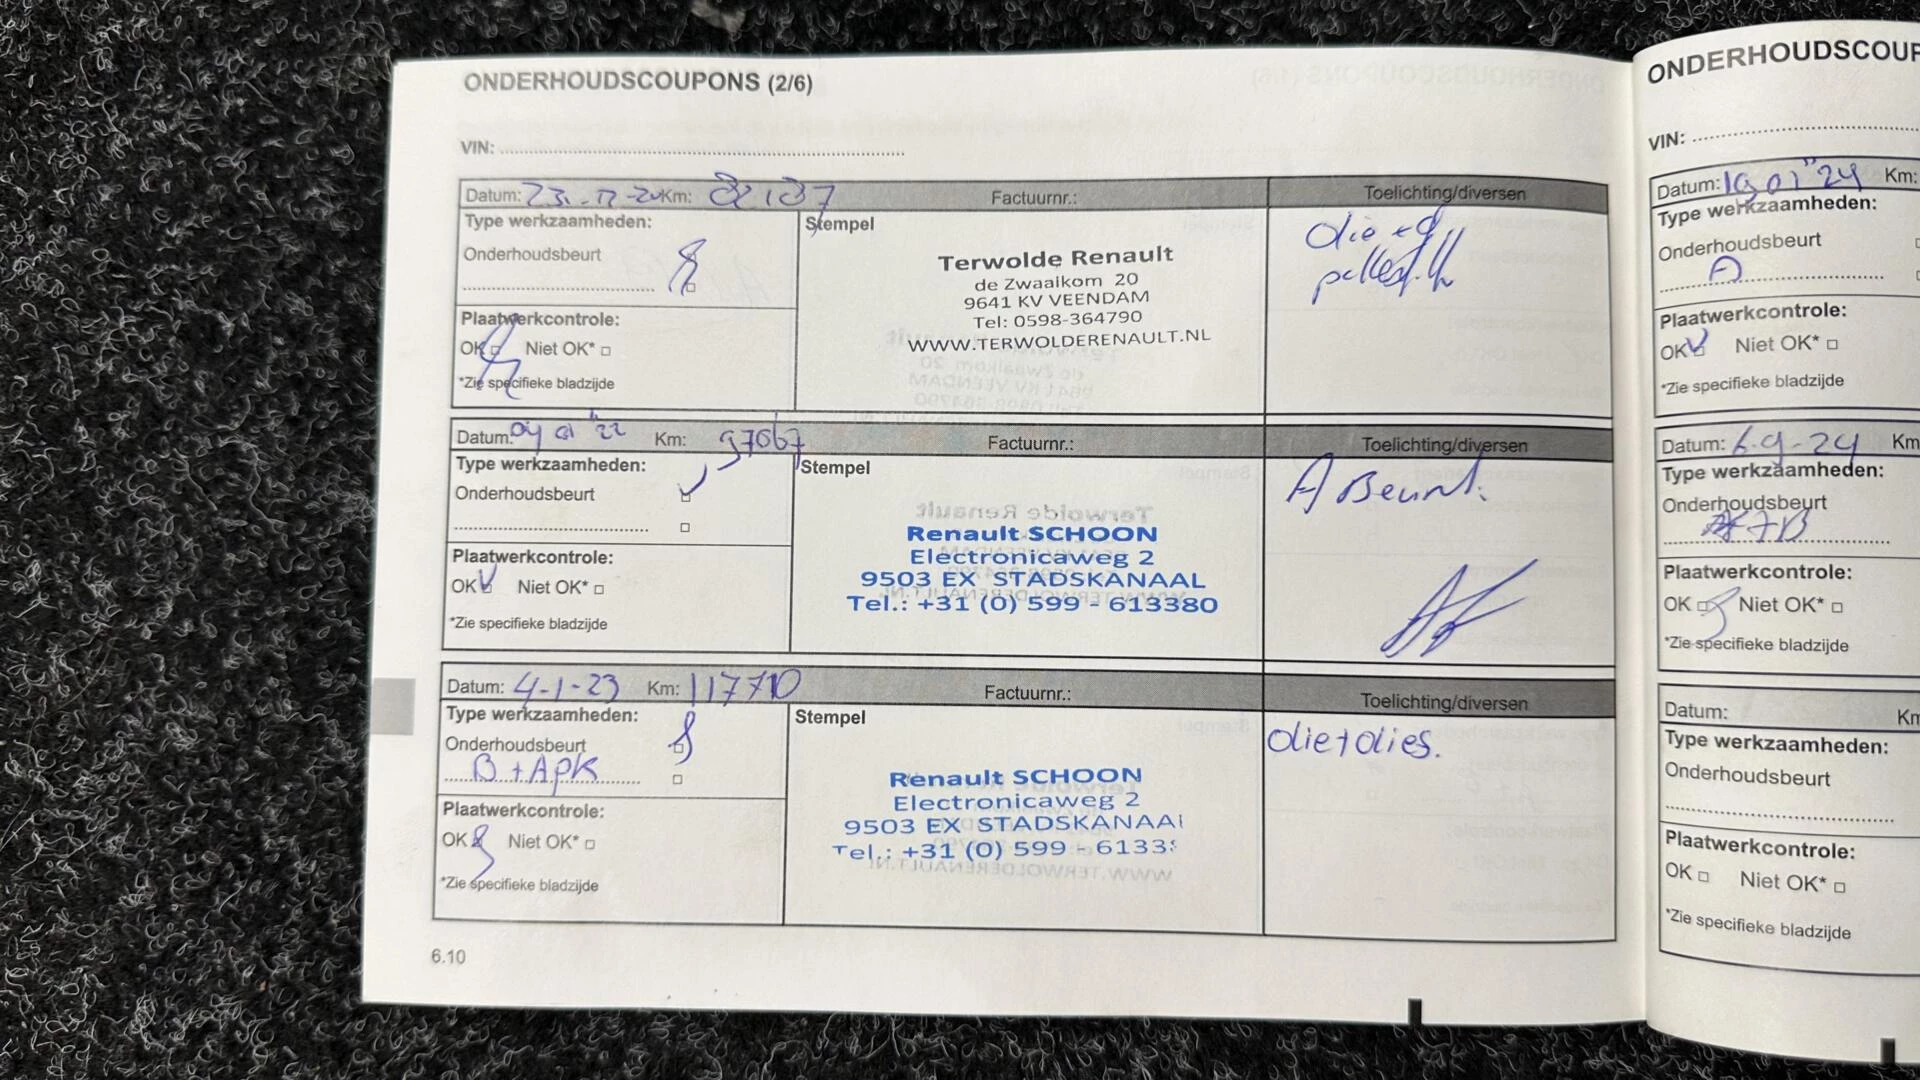 ONDERHOUDSCOUPONS (2/6)
VIN:
Datum: Km: Factuurnr.: Toelichting/diversen
Type werkzaamheden:
Stempel
Onderhoudsbeurt
Olie
Terwolde Renault
de Zwaaikom 20
9641 KV VEENDAM
Tel: 0598-364790
WWW.TERWOLDERENAULT.NL
Plaatwerkcontrole:
OK Niet OK*
*Zie specifieke bladzijde
Datum: 04 01 "22 Km: 97067 Factuurnr.: Toelichting/diversen
Type werkzaamheden:
Stempel
Onderhoudsbeurt
A Beurt.
Renault SCHOON
Electronicaweg 2
9503 EX STADSKANAAL
Tel.: +31 (0) 599 - 613380
Plaatwerkcontrole:
OK Niet OK*
*Zie specifieke bladzijde
Datum: 4-1-23 Km: 117710 Factuurnr.: Toelichting/diversen
Type werkzaamheden:
Stempel
Onderhoudsbeurt
B + APK
Olie + olies.
Renault SCHOON
Electronicaweg 2
9503 EX STADSKANAA
Tel.: +31 (0) 599 - 6133
Plaatwerkcontrole:
OK Niet OK*
*Zie specifieke bladzijde
6.10
ONDERHOUDSCOUP
VIN:
Datum: 19 01 "24 Km:
Type werkzaamheden:
Onderhoudsbeurt
A
Plaatwerkcontrole:
OK Niet OK*
*Zie specifieke bladzijde
Datum: 6-9-24 Km
Type werkzaamheden:
Onderhoudsbeurt
Plaatwerkcontrole:
OK Niet OK*
*Zie specifieke bladzijde
Datum: Km
Type werkzaamheden:
Onderhoudsbeurt
Plaatwerkcontrole:
OK Niet OK*
*Zie specifieke bladzijde